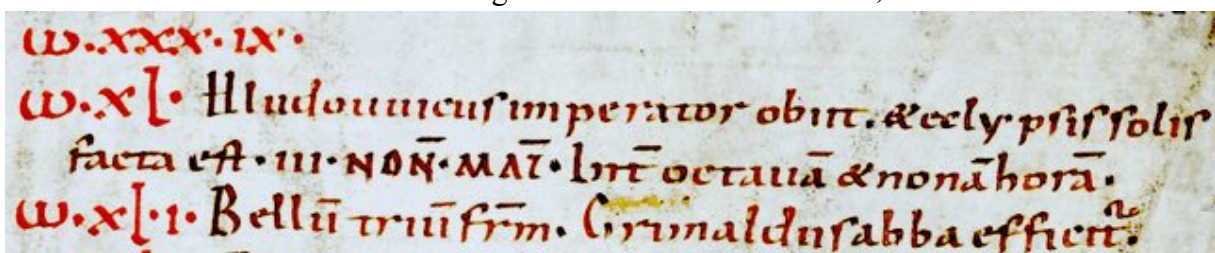 ω·xxx·ıx·
ω·xl· Hludouuicus imperator obiit. & eclypsis solis
facta est· III· NON̄· MAī· Int̄ octauā & nonā horā·
ω·xl·ı· Bellū triū frm̄. Grimaldus abba efficit᷑.